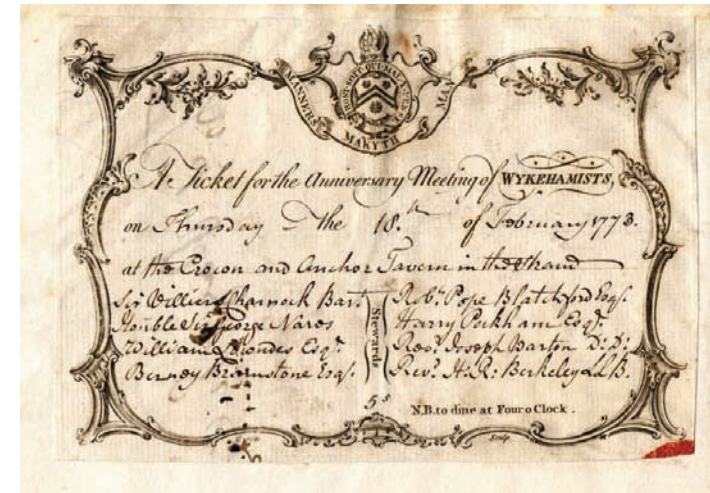 HONI SOIT QUI MAL Y PENSE
MANNERS MAKYTH MAN
A Ticket for the Anniversary Meeting of WYKEHAMISTS,
on Thursday the 18.th of February 1773.
at the Crown and Anchor Tavern in the Strand
Sir Williers Charnock Bart.
Honble Sir George Nares
William Lowndes Esqr.
Berney Bramstone Esqr.
Stewards
Robt. Pope Blatchford Esqr.
Harry Peckham Esqr.
Revd. Joseph Barton D:D:
Revd. H:R: Berkeley LLB.
5s
N.B. to dine at Four o Clock.
Sculp